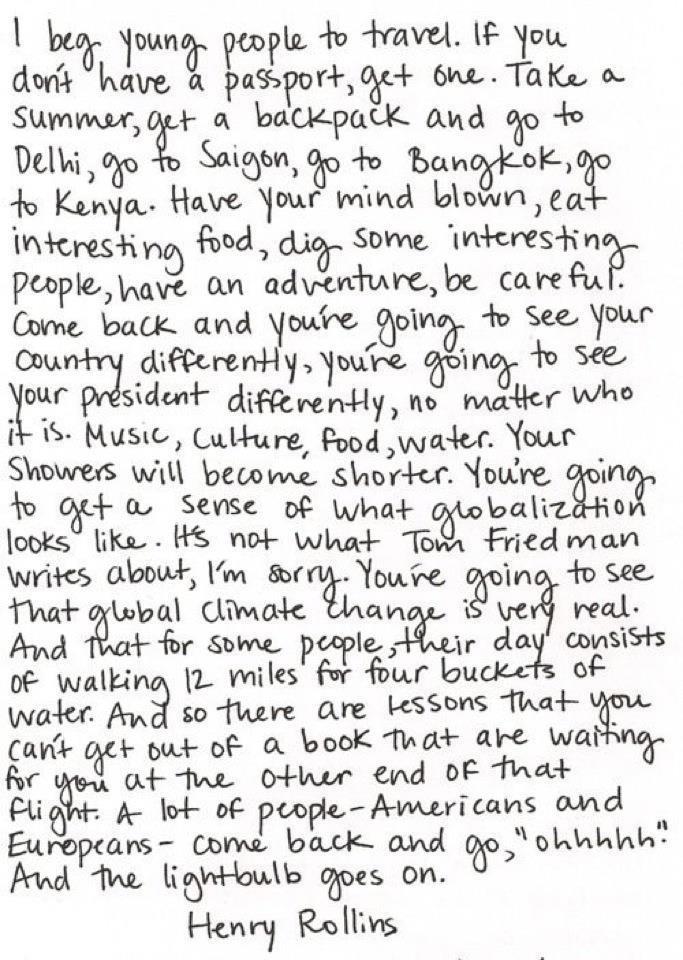 I beg young people to travel. If you
don't have a passport, get one. Take a
summer, get a backpack and go to
Delhi, go to Saigon, go to Bangkok, go
to Kenya. Have your mind blown, eat
interesting food, dig some interesting
people, have an adventure, be careful.
Come back and you're going to see your
country differently, you're going to see
your president differently, no matter who
it is. Music, culture, food, water. Your
showers will become shorter. You're going
to get a sense of what globalization
looks like. It's not what Tom Friedman
writes about, I'm sorry. You're going to see
that global climate change is very real.
And that for some people, their day consists
of walking 12 miles for four buckets of
water. And so there are lessons that you
can't get out of a book that are waiting
for you at the other end of that
flight. A lot of people-Americans and
Europeans- come back and go, "ohhhhh."
And the lightbulb goes on.
Henry Rollins